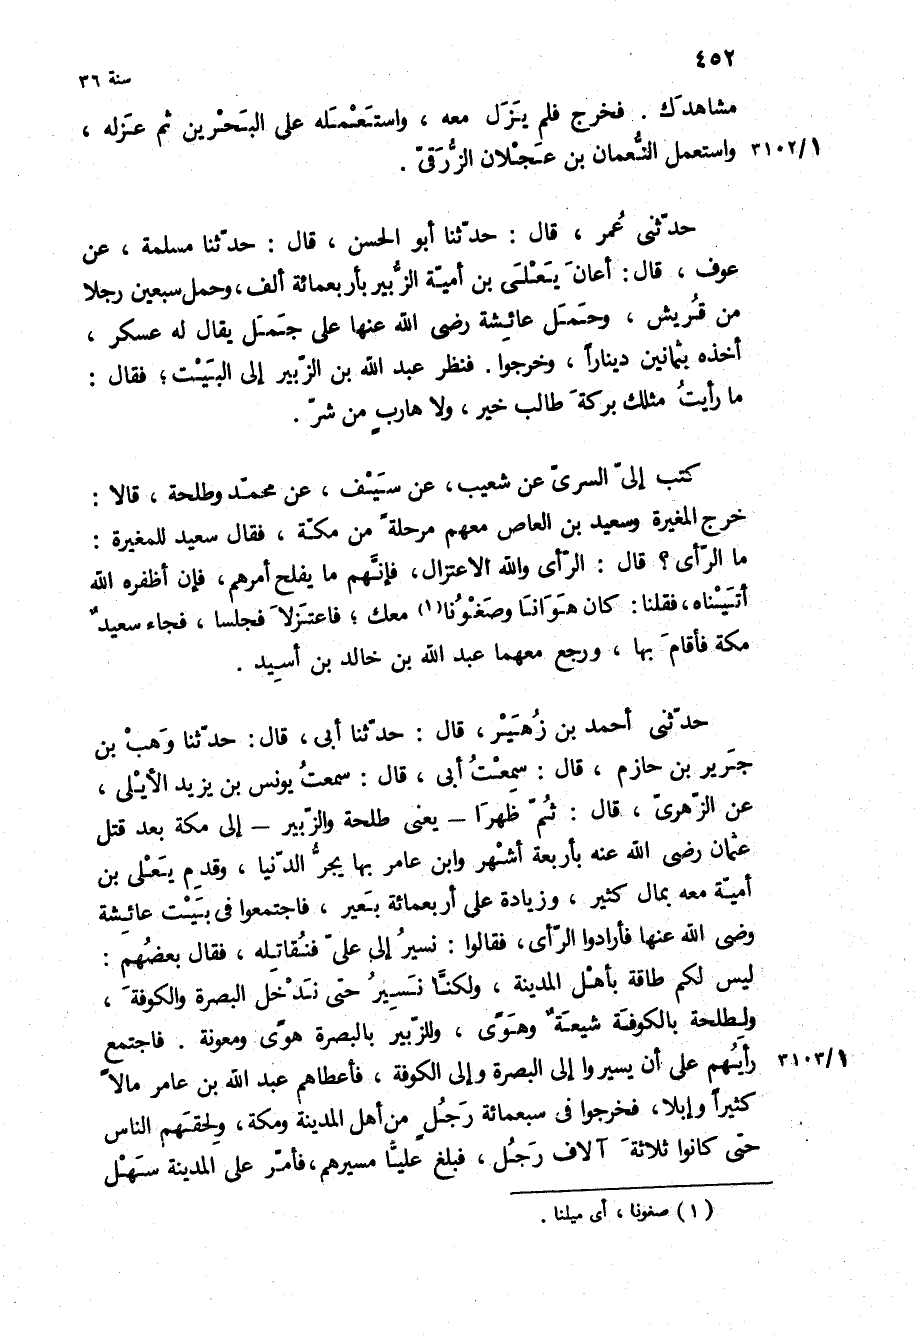 ٤٥٢
سنة ٣٦
مشاهدَك . فخرج فلم يَزَل معه ، واستَعْمَله على البَحْرين ثم عَزله ،
واستعمل النُّعمان بن عَجْلان الزُّرَقىّ . ٣١٠٢/١
حدّثنى عُمر ، قال : حدّثنا أبو الحسن ، قال : حدّثنا مسلمة ، عن
عوف ، قال : أعانَ يَعْلَى بن أميّة الزُّبير بأربعمائة ألف، وحمل سبعين رجلا
من قُريش ، وحَمَل عائِشة رضى الله عنها على جَمَل يقال له عسكر ،
أخذه بثمانين ديناراً ، وخرجوا . فنظر عبد الله بن الزّبير إلى البَيْت ؛ فقال :
ما رأيتُ مثلك بركةَ طالب خير ، ولا هاربٍ من شرّ .
كتب إلىّ السرىّ عن شعيب، عن سَيْف ، عن محمّد وطلحة ، قالا :
خرج المغيرة وسعيد بن العاص معهم مرحلةً من مكّة ، فقال سعيد للمغيرة :
ما الرّأى ؟ قال : الرّأى والله الاعتزال، فإنَّهم ما يفلح أمرهم، فإن أظفره الله
أتَيْناه، فقلنا : كان هَوَانَا وصَغْوُنا(١) معك ؛ فاعتَزلاَ فجلسا ، فجاء سعيدٌ
مكة فأقامَ بها ، ورجع معهما عبد الله بن خالد بن أسِيد .
حدّثنى أحمد بن زُهَيْر، قال : حدّثنا أبى، قال : حدّثنا وَهبْ بن
جَرير بن حازم ، قال : سمِعْتُ أبى ، قال : سمعتُ يونس بن يزيد الأيْلى ،
عن الزّهرىّ ، قال : ثُمّ ظهرَا – يعنى طلحة والزّبير – إلى مكة بعد قتل
عثمان رضى الله عنه بأربعة أشْهر وابن عامر بها يجرُّ الدّنيا ، وقدِم يَعْلى بن
أميّة معه بمال كثير ، وزيادة على أربعمائة بَعير ، فاجتمعوا فى بيَتْ عائِشة
وضى الله عنها فأرادوا الرّأى، فقالوا : نسيرُ إلى علىّ فنُقاتِله ، فقال بعضُهم :
ليس لكم طاقة بأهْل المدينة ، ولكنَّا نَسِيرُ حتّى نَدْخل البصرة والكوفةَ ،
ولِطلحة بالكوفة شيعَةٌ وهَوًى ، وللزّبير بالبصرة هوًى ومعونة . فاجتمع
رأيُهم على أن يسيروا إلى البصرة وإلى الكوفة ، فأعطاهم عبد الله بن عامر مالاً ٣١٠٣/١
كثيراً وإبلا، فخرجوا فى سبعمائة رَجُلٍ من أهل المدينة ومكة، ولحقَهم الناس
حتّى كانوا ثلاثةَ آلاف رَجُل ، فبلغ عليًّا مسيرهم، فأمّر على المدينة سَهْل
(١) صغونا ، أى ميلنا .